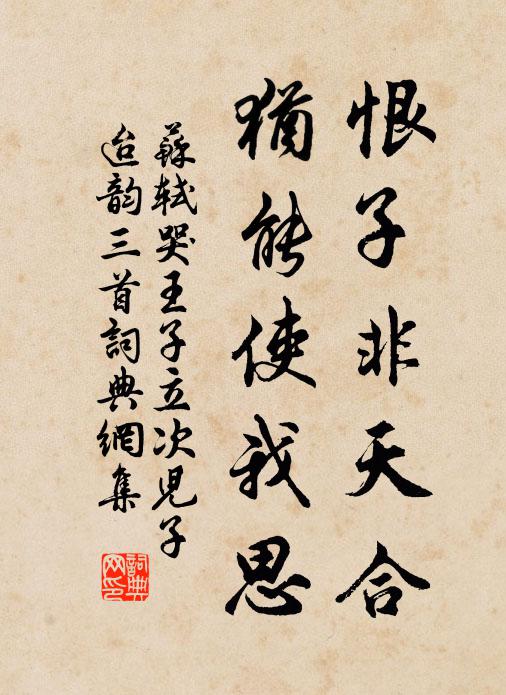 恨子非天合
猶能使我思
蘇軾哭王子立次兒子
迨韵三首詞典網集
詞典网印